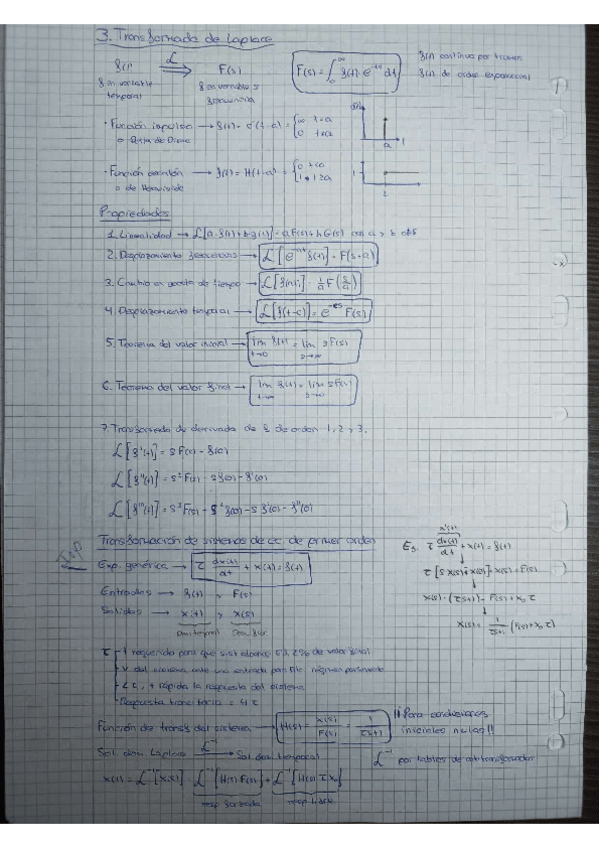 3. Transformada de Laplace
f(t) ⟹ F(s)
ℒ
f en variable temporal
f en variable s frecuencia
F(s) = ∫₀^∞ f(t)·e^{-st} dt
f(t) continua por tramos
f(t) de orden exponencial
· Función impulso → f(t) = δ(t-a) = {∞ t=a
o Delta de Dirac
0 t≠a
a
t
· Función escalón → f(t) = H(t-a) = {0 t<a
o de Heaviside
1 t≥a
1
Propiedades
1. Linealidad → ℒ[a·f(t)+b·g(t)] = aF(s)+bG(s) con a y b
2. Desplazamiento → ℒ[e^{-at} f(t)] = F(s+a)
3. Cambio en escala de tiempo → ℒ[f(at)] = 1/a F(s/a)
4. Desplazamiento temporal → ℒ[f(t-c)] = e^{-cs} F(s)
5. Teorema del valor inicial → lim f(t) = lim sF(s)
t→0 s→∞
6. Teorema del valor final → lim f(t) = lim sF(s)
t→∞
7. Transformada de derivada de f de orden 1, 2 y 3.
ℒ[f'(t)] = sF(s) - f(0)
ℒ[f''(t)] = s²F(s) - sf(0) - f'(0)
ℒ[f'''(t)] = s³F(s) - s²f(0) - s f'(0) - f''(0)
Imp
Transformación de sistemas de de primer orden
Exp. genérica → τ dx(t)/dt + x(t) = f(t)
Entradas → f(t) y F(s)
Salidas → x(t) y X(s)
dom temporal
x'(t)
Ej. τ dx(t)/dt + x(t) = f(t)
X(s)·(τs+1) = F(s)+x₀τ
X(s) = 1/(τs+1) · (F(s)+x₀τ)
τ t requerido para que sist alcance 63,2% de valor final
v del sistema ante una entrada
<τ, + rápida la respuesta del sistema
Respuesta transitoria = 4τ
Función de transf del sistema → H(s) = X(s)/F(s) = 1/(τs+1)
!!Para condiciones iniciales nulas!!
Sol. dom. Laplace ℒ⁻¹→ Sol dom temporal
ℒ⁻¹ por tablas de
x(t) = ℒ⁻¹[X(s)] = ℒ⁻¹[H(s)F(s)] + ℒ⁻¹[H(s)τx₀]
resp forzada
resp libre